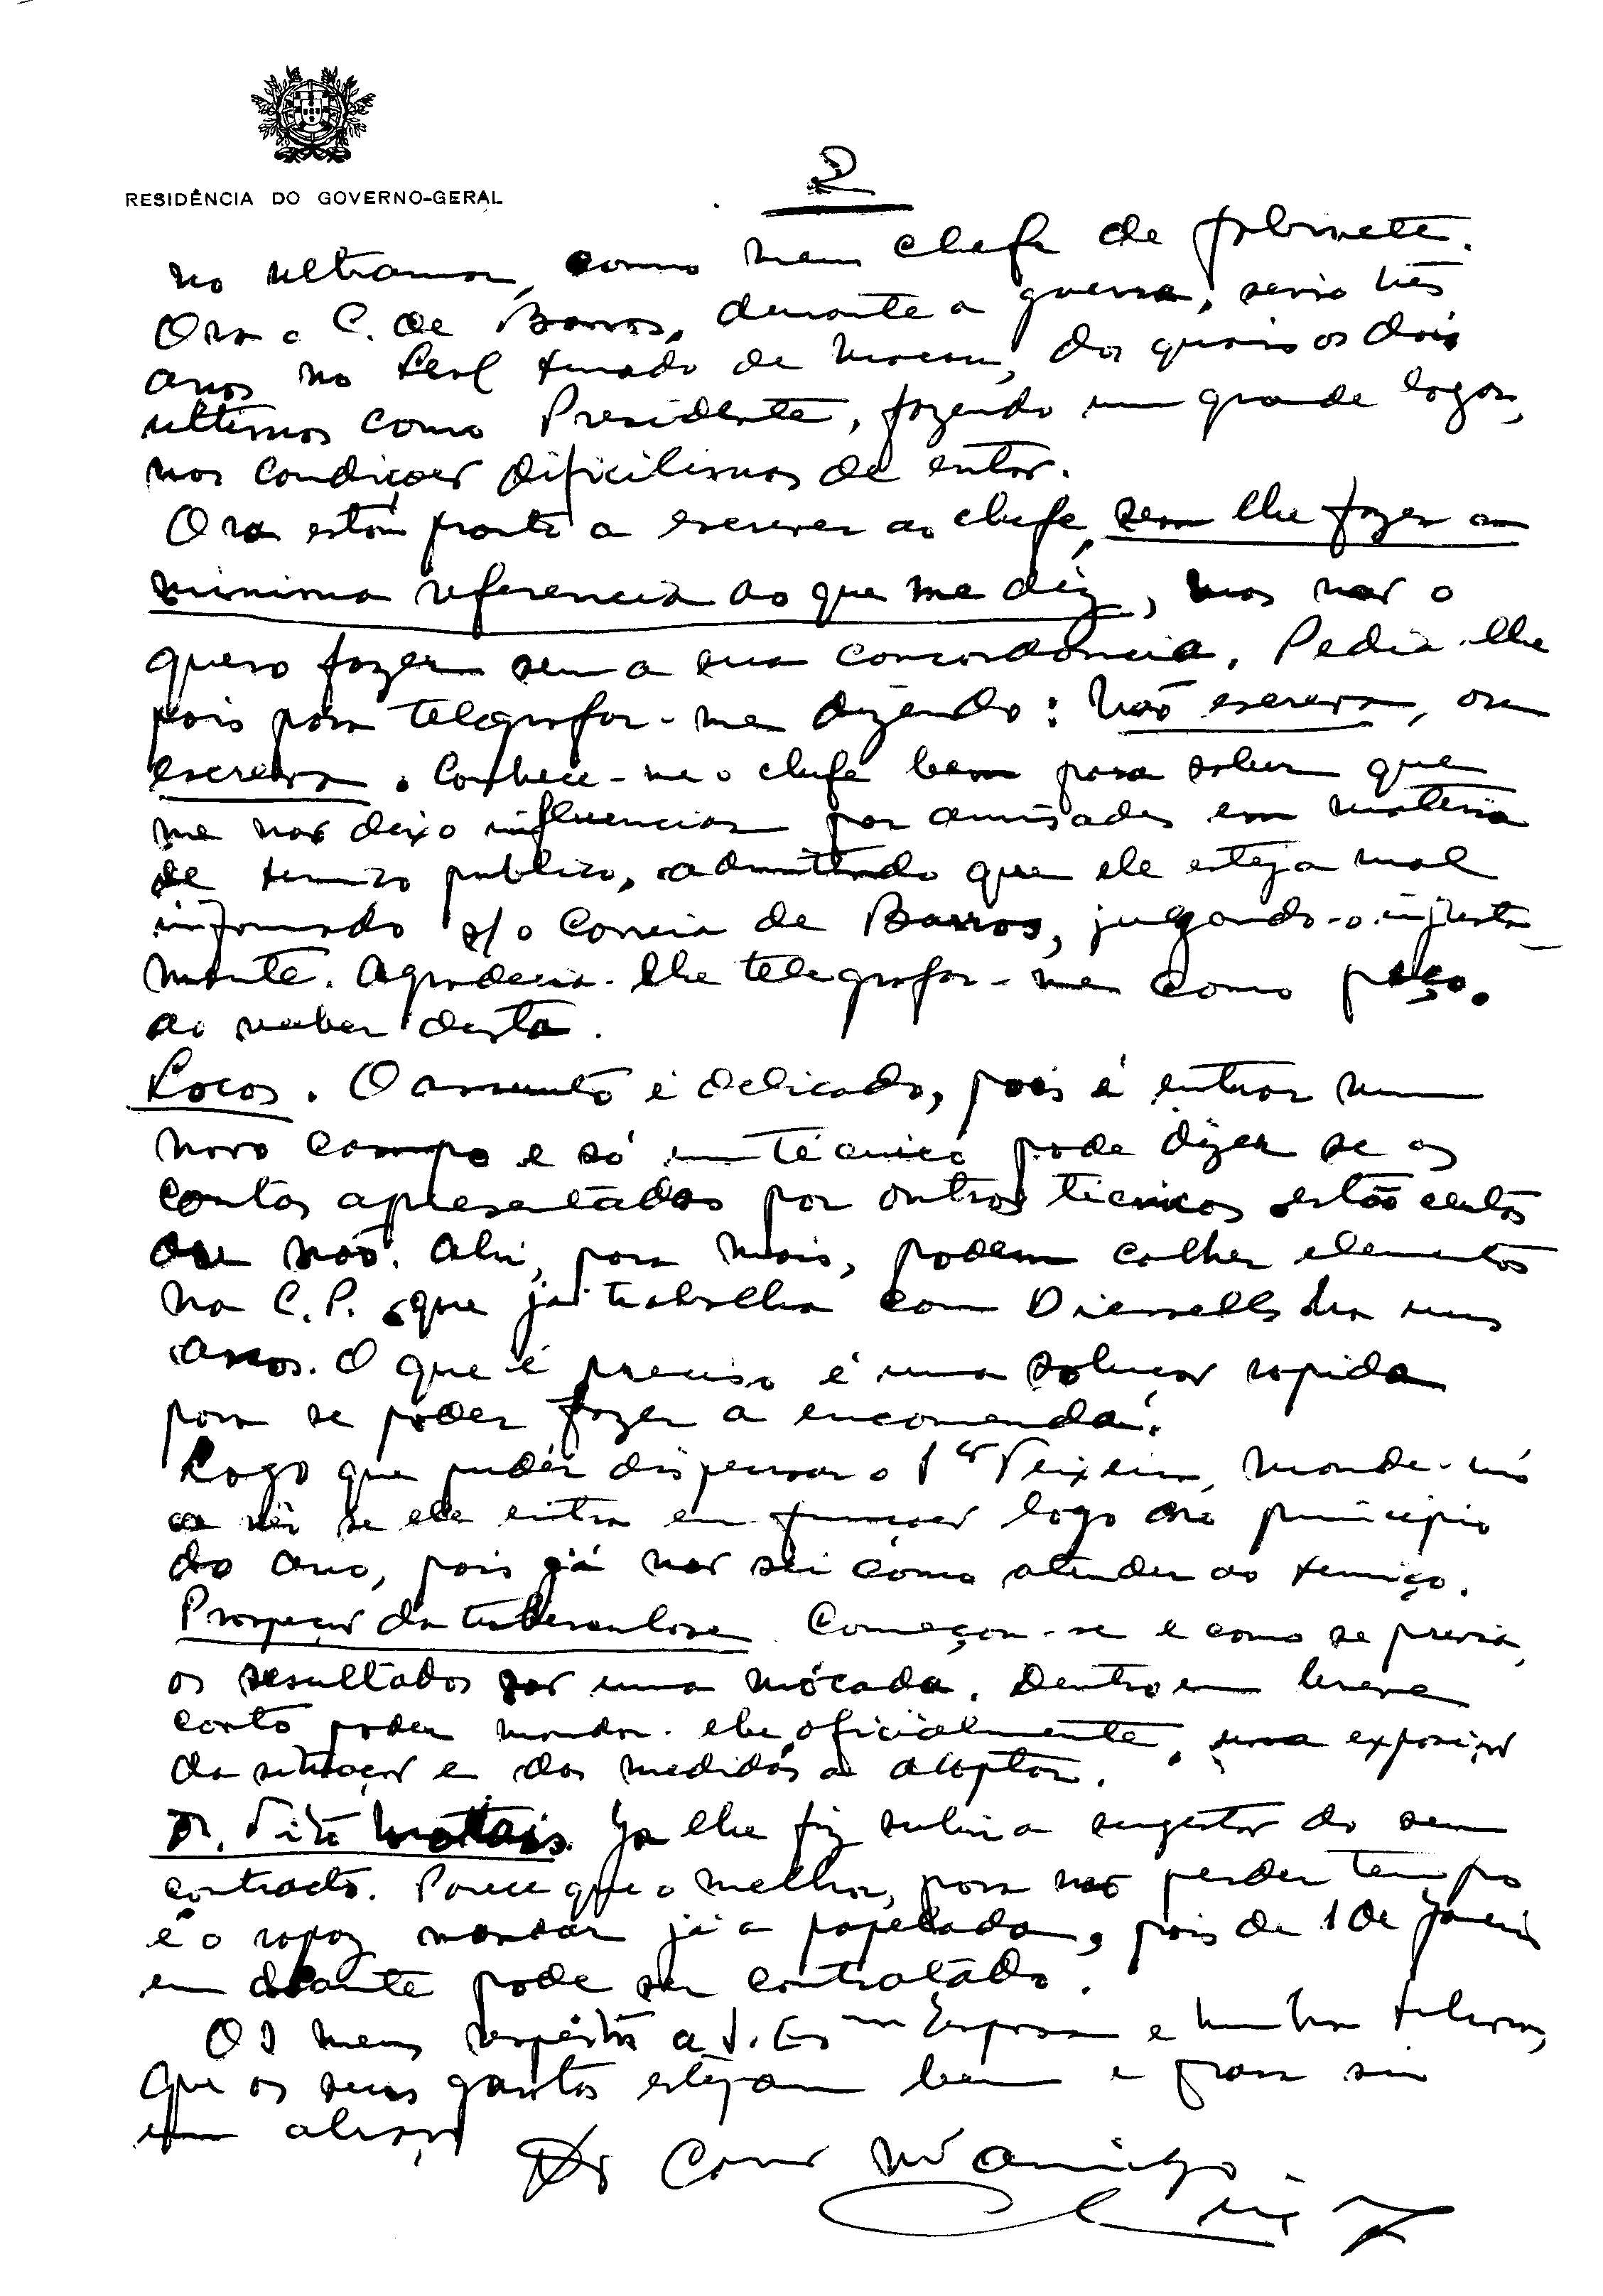 RESIDÊNCIA DO GOVERNO-GERAL
2
no ultramar, como meu chefe de gabinete.
Ora o C. de Barros, durante a guerra, serviu três
anos no Leal Senado de Macau, dos quais os dois
ultimos como Presidente, fazendo um grande logar,
nas condições dificilimas de entao.
Ora estou pronto a escrever ao chefe, sem lhe fazer a
minima referencia ao que me diz, mas nao o
quero fazer sem a sua concordância. Pedia-lhe
pois para telegrafar-me dizendo: Não escreva, ou
escreva. Conhece-me o chefe bem para saber que
me nao deixo influenciar por amisades em materia
de serviço publico, admitindo que ele esteja mal
informado s/ o Correia de Barros, julgando-o injusta-
mente. Agradecia-lhe telegrafar-me como peço.
ao receber desta.
Locos. O assunto é delicado, pois é entrar num
novo campo e só um técnico pode dizer se as
contas apresentadas por outros técnicos estão certas
ou não. Ahi, para mais, podem colher elementos
na C.P. que já trabalha com Diesells ha uns
anos. O que é preciso é uma soluçao rapida
para se poder fazer a encomenda.
Logo que pudér dispensar o Teixeira, mande-mo
a vêr se ele entra em funçoes logo no principio
do ano, pois já nao sei como atender ao serviço.
Prospeçao da tuberculose Começou-se e como se previa,
os resultados sao uma mócada. Dentro em breve
conto poder mandar-lhe, oficialmente, uma exposiçao
da situaçao e das medidas a adoptar.
Dr. Já lhe fiz subir a sugestao do seu
contracto. Parece que o melhor, para não perder tempo
é o rapaz mandar já a papelada, pois de 1 de Janeiro
em deante pode ser contratado.
Os meus respeitos a S. Ex.ma Esposa e minha
que os seus gaiatos estejam bem e para si
um abraço
Do Como mto amigo